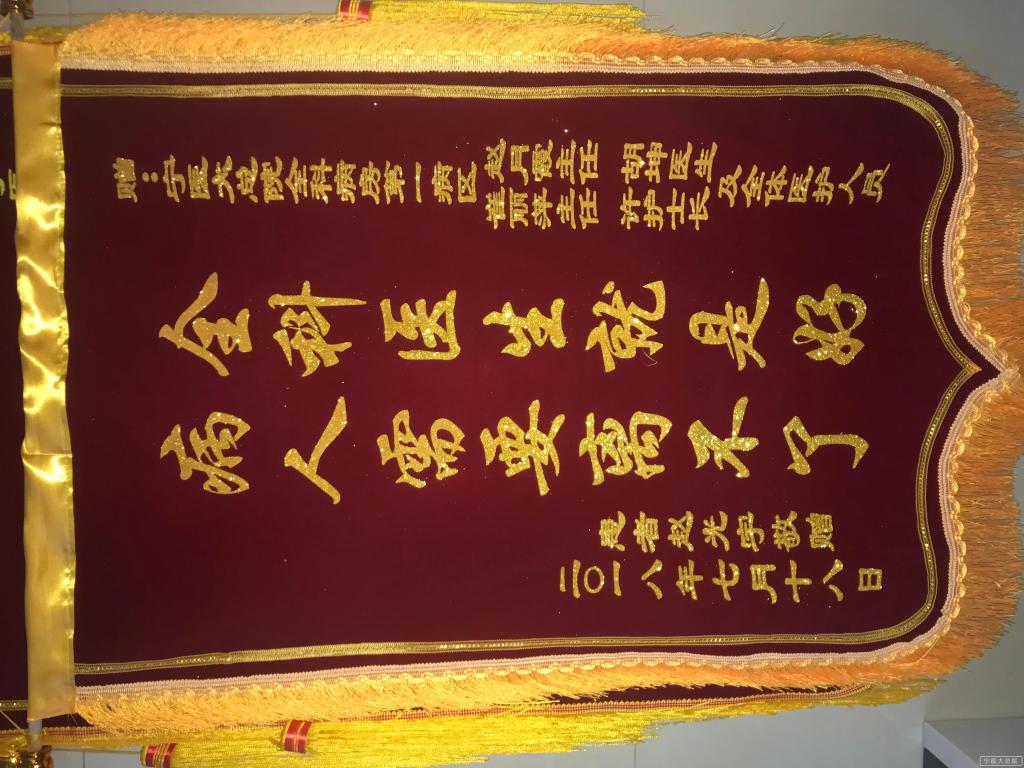 赠：宁医大总院全科病房第一病区
赵月霞主任 胡坤医生
董丽萍主任 许护士长
及全体医护人员
全科医生就是好
病人需要离不了
患者赵光宇敬赠
二〇一八年七月十八日
宁医大总院